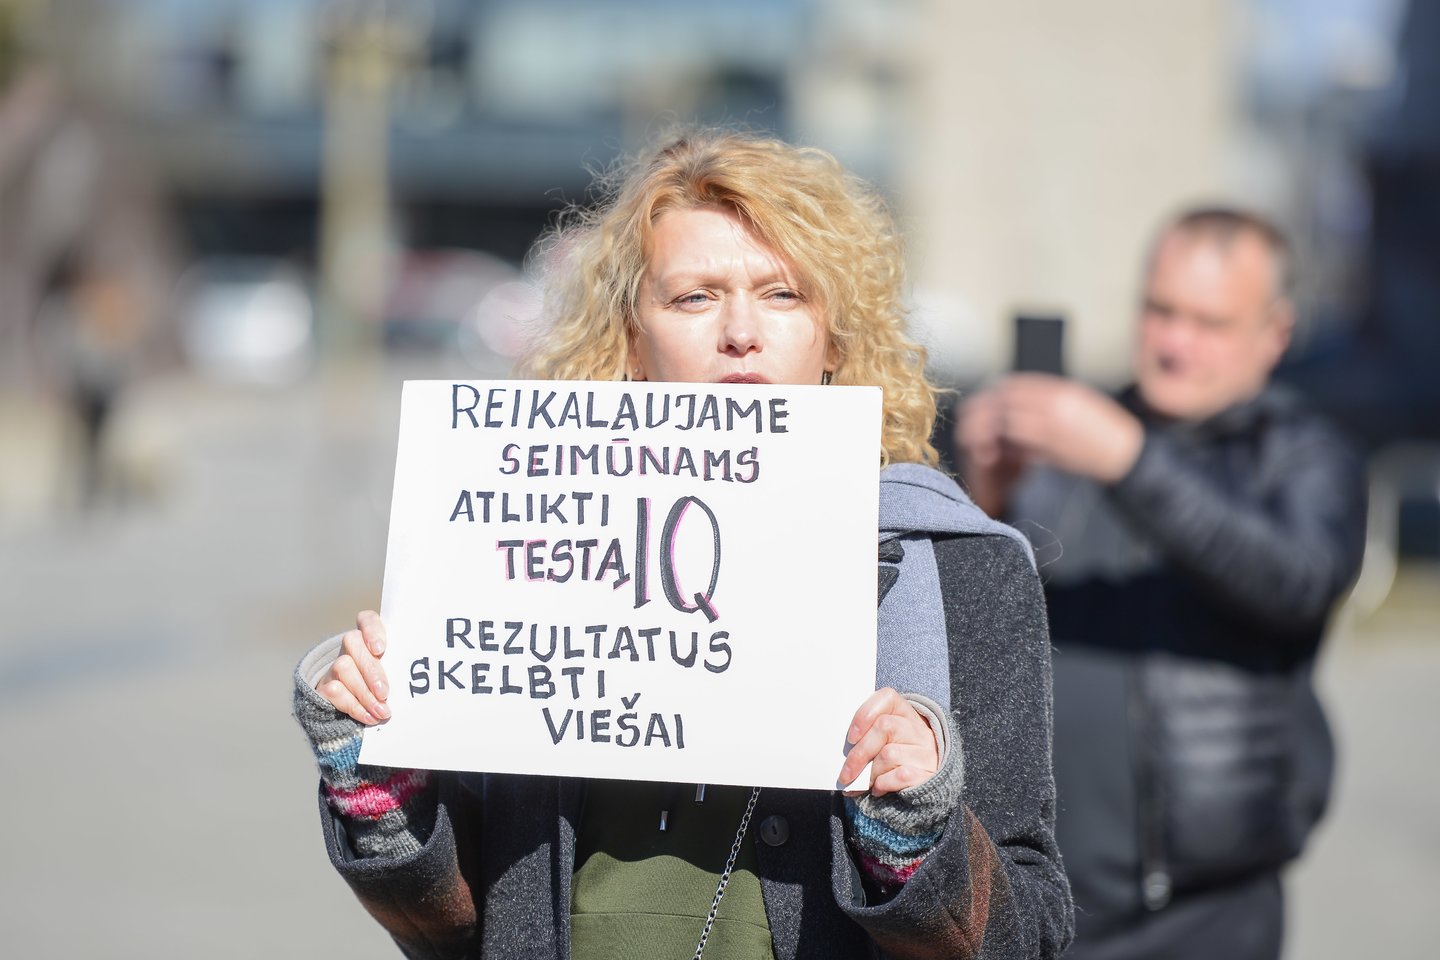 REIKALAUJAME
SEIMŪNAMS
ATLIKTI IQ
TESTĄ
REZULTATUS
SKELBTI
VIEŠAI